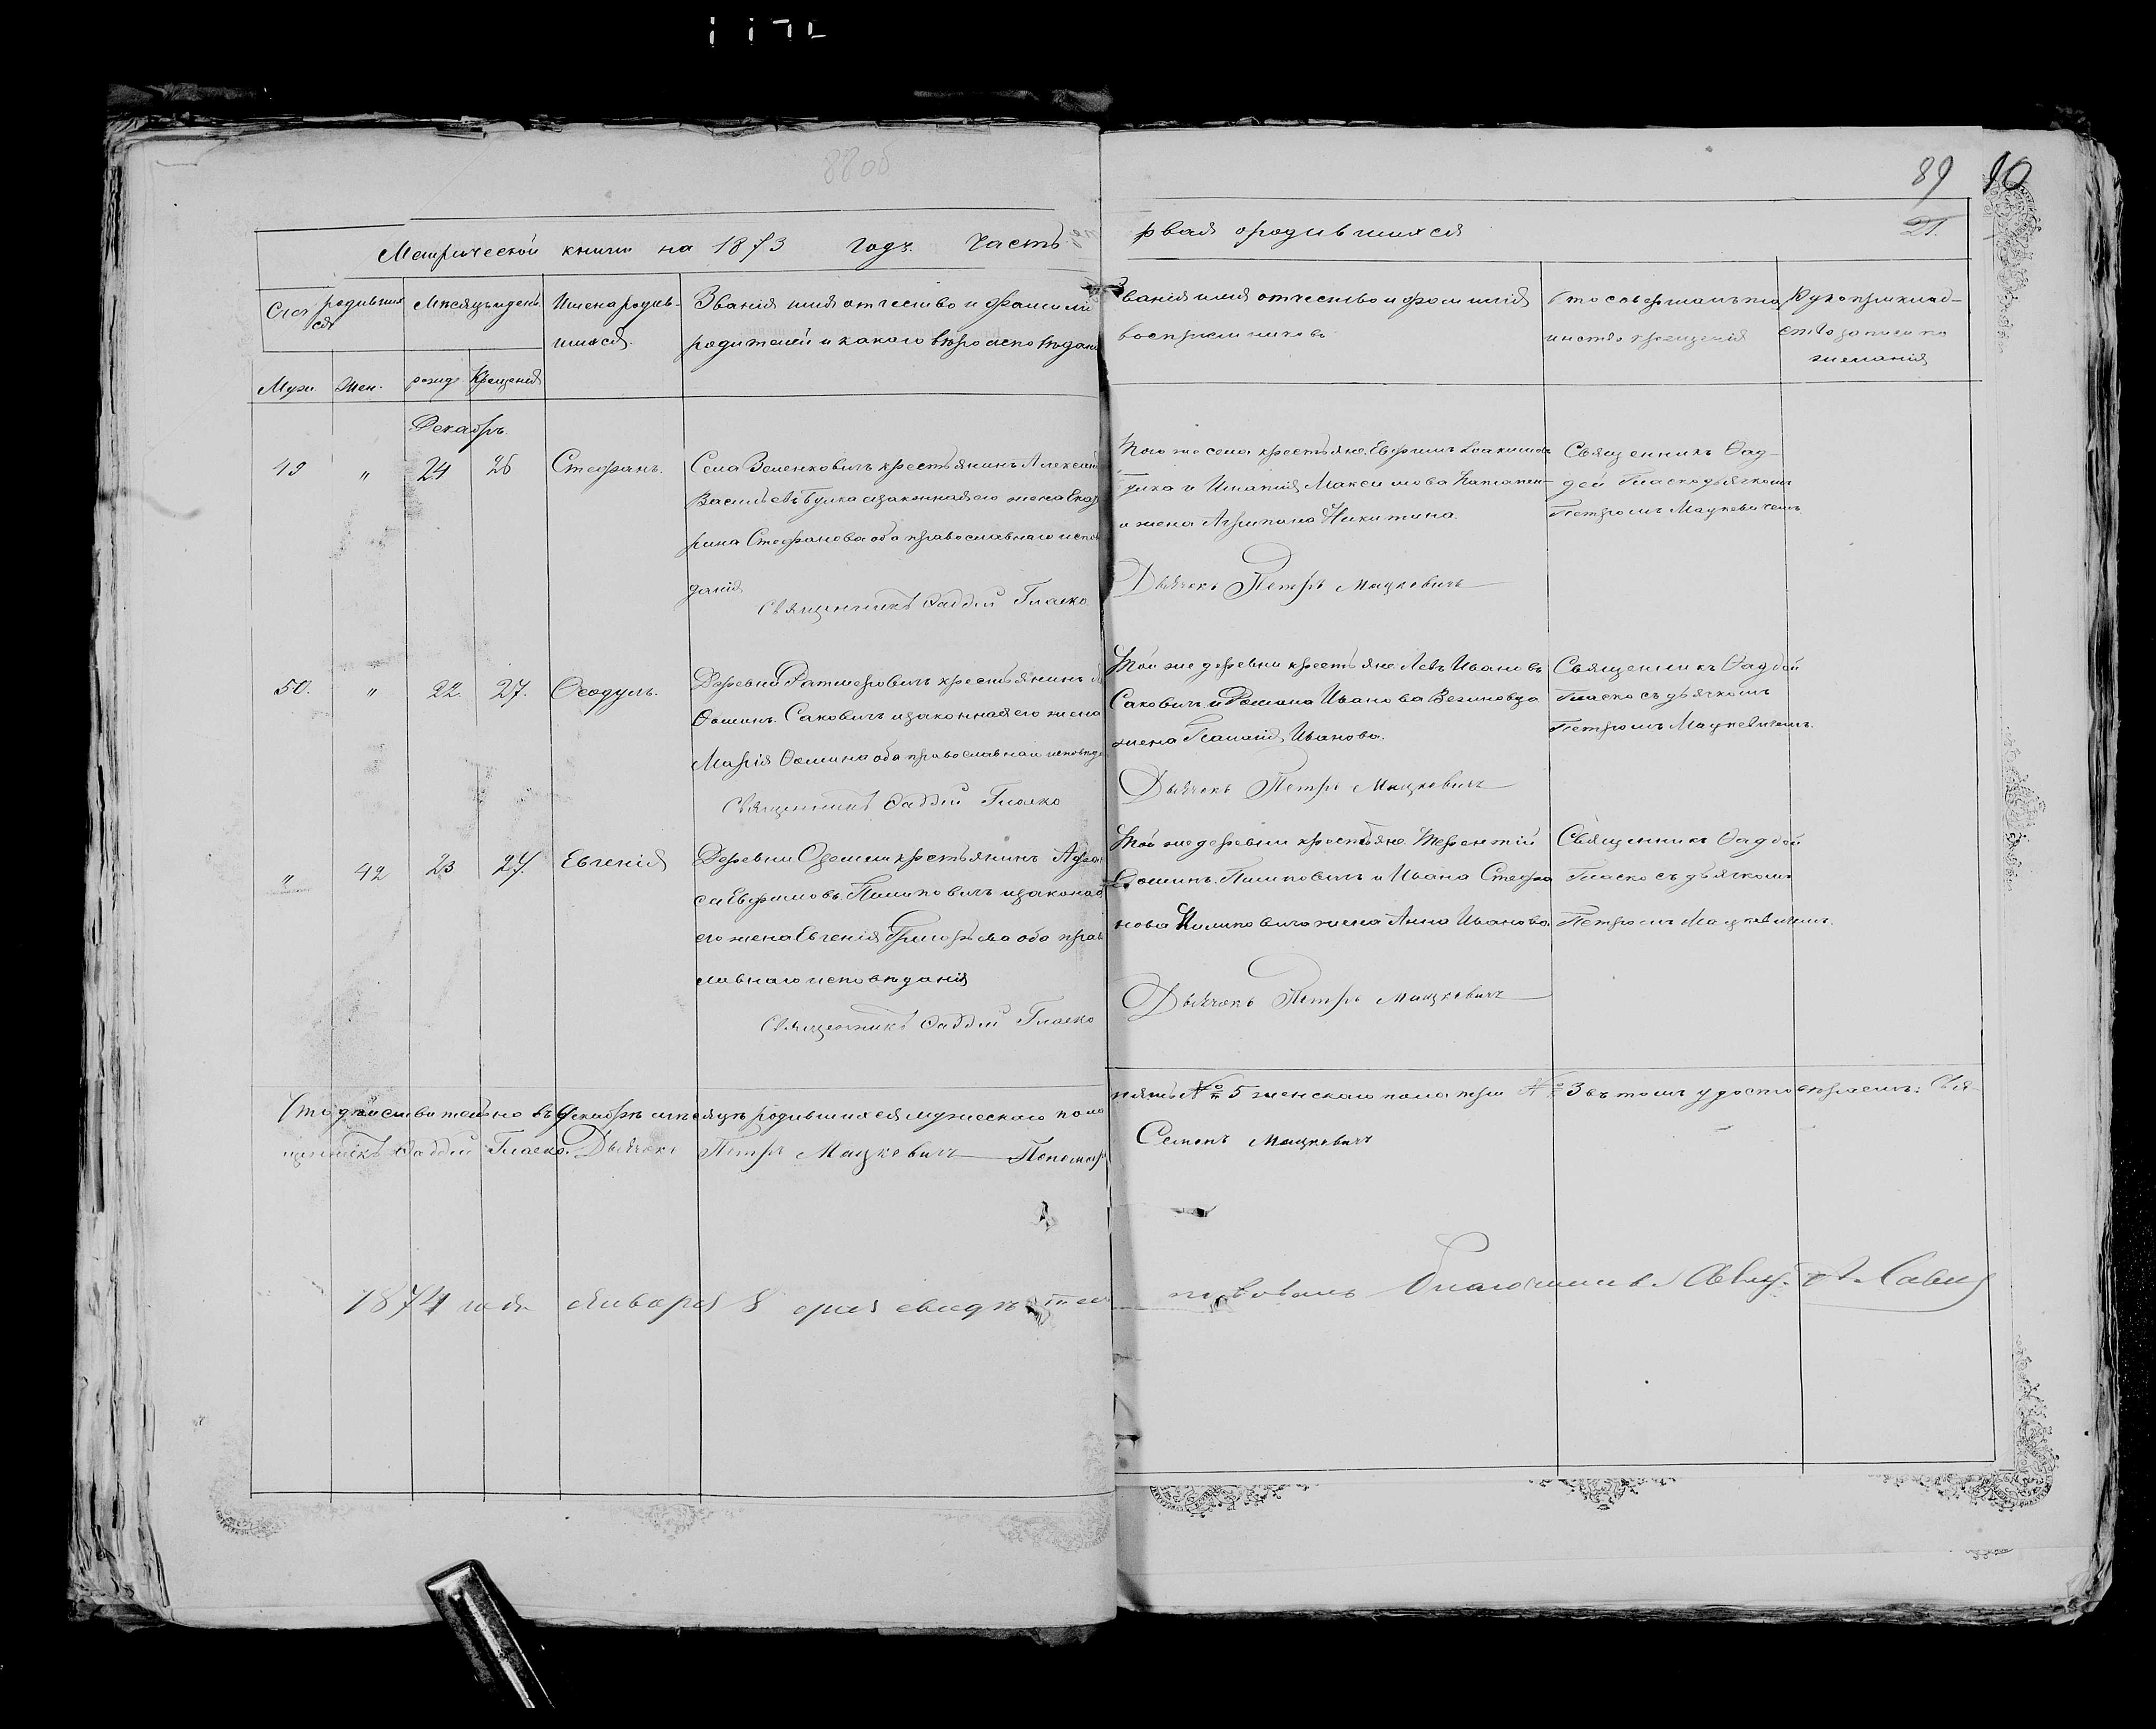 88об
89 90
21.
Метрической книги на 1873 годъ. Часть пе
рвая ородившихся
Счет родивших
ся
Мѣсяцъ и день
Имена родив-
шихся.
Званія имя отчество и фамилі
родителей и какого вѣроисповѣдані
Званія имя отчество и фамилія
воспріемниковъ
Кто совершалъ таи
инство крещенія
Рукоприклад-
ство записи по
желанія
Муж. Жен. рожде Крещенія
Декабрь.
49 " 24 26 Стефанъ.
Села Зеленковичъ крестьянинъ Алексей
Васильевъ Булка изаконная его жена Екат
рина Стефанова оба православнаго испов
данія
Священникъ Фаддей Гласко
Того же села крестьяне Ефримъ Іоакимовъ
Булка и Игнатія Максимова
и жена Агрипина Никитина.
Дьячекъ Петръ Мацкевичъ
Священникъ Фад-
дей Гласко дьячкомъ
Петромъ Мацкевичемъ
50. " 22. 27. Феодулъ.
Деревни Ратмеровичъ крестьянинъ
Фоминъ. Саковичъ изаконная его жена
Марія Фомина оба православнаго исповѣда
Священникъ Фаддей Гласко
Той же деревни крестьяне Левъ Ивановъ
Саковичъ и Романа Иванова
жена Пелагія Иванова.
Дьячекъ Петръ Мацкевичъ
Священникъ Фаддей
Гласко съ дьячкомъ
Петромъ Мацкевичемъ.
" 42 23 27. Евгенія
Деревни Орешли крестьянинъ Афана
сіи Ефримовъ. Пилиповичъ изаконая
его жена Евгенія Григорьева оба прав
славнаго исповѣданія
Священникъ Фаддей Гласко
Той же деревни крестьяне Терентій
Фоминъ. Пилиповичъ и Ивана Стефа
нова Пилиповича жена Анна Иванова.
Дьячекъ Петръ Мацкевичъ
Священникъ Фаддей
Гласко съ дьячкомъ
Петромъ Мацкевичемъ.
Что дѣйствительно въ Декабрѣ мѣсяцѣ родившихся мужескаго пола
пять № 5 женскаго пола три № 3 въ томъ удостовѣряемъ: Свя-
щенникъ Фаддей Гласко. Дьячекъ Петръ Мацкевичъ Пономарь
Семенъ Мацкевичъ
1874 года Января 8 дня свидѣтель
ствовалъ Благочинный Свящ. А. Савич